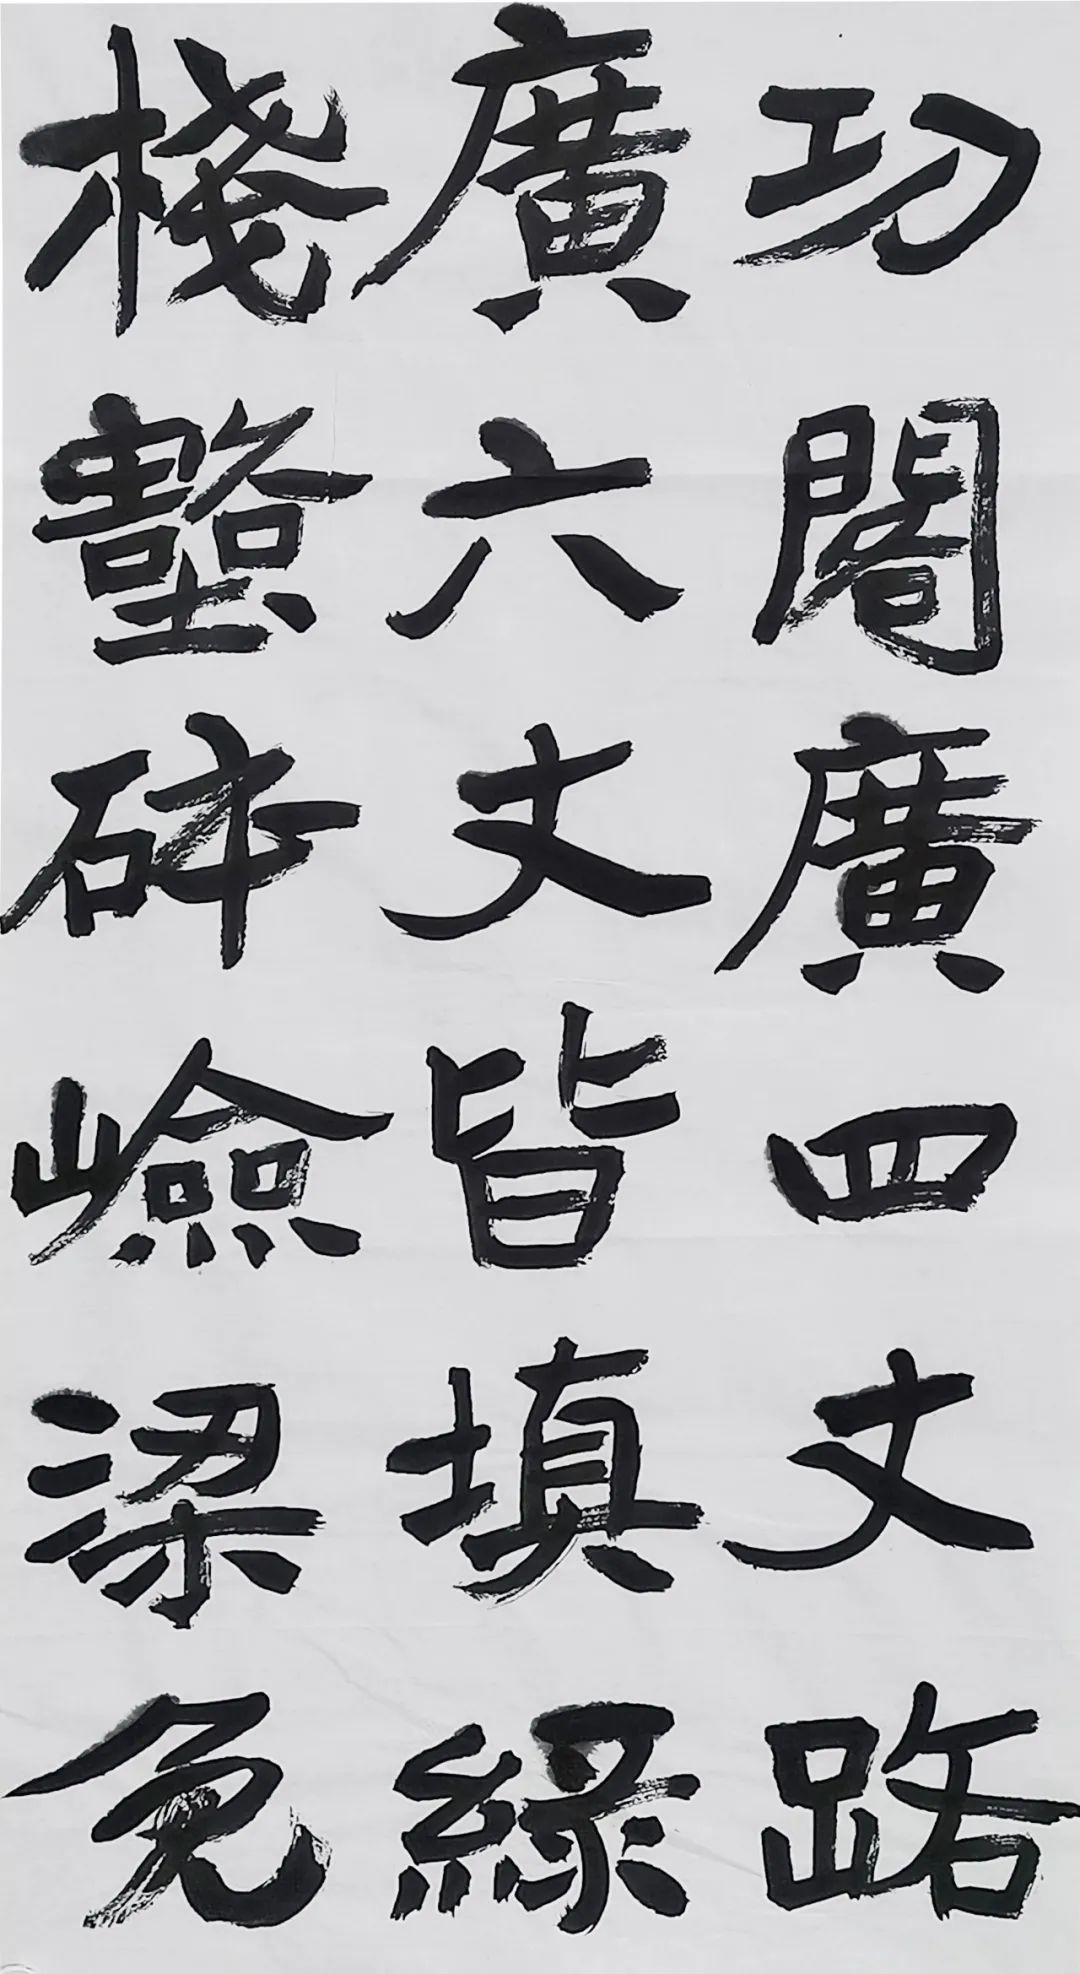 功閣廣四丈路
廣六丈皆填緣
棧壑砰嶮梁危